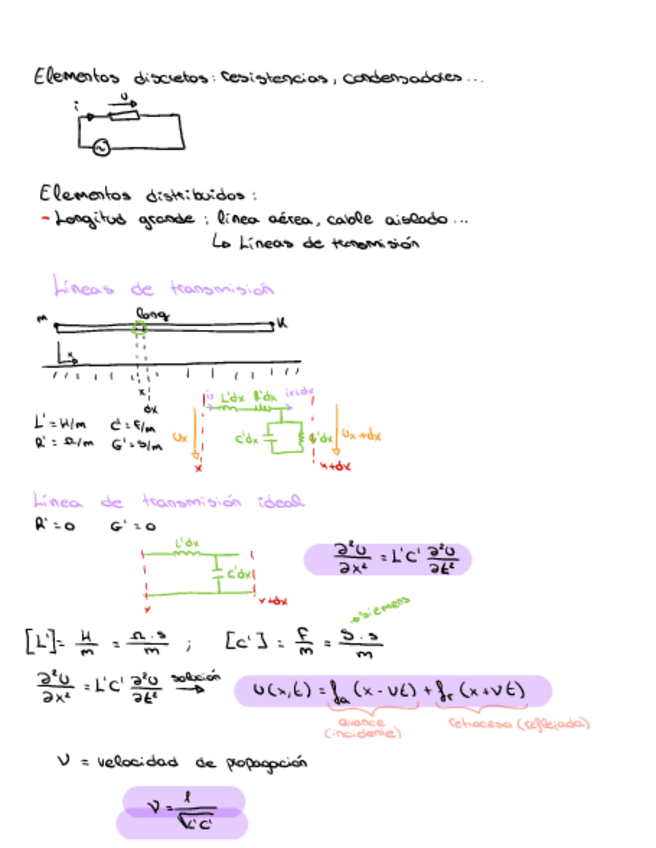 Elementos discretos: resistencias, condensadores...
i
u
Elementos distribuidos:
- Longitud grande: línea aérea, cable aislado...
↳ Líneas de transmisión
Líneas de transmisión
m
long
k
x
x
dx
L' = H/m C' = F/m
R' = Ω/m G' = S/m
i L'dx R'dx ix+dx
Ux C'dx G'dx Ux+dx
x x+dx
Línea de transmisión ideal
R' = 0 G' = 0
L'dx
C'dx
x x+dx
∂²U/∂x² = L'C' ∂²U/∂t²
siemens
[L'] = H/m = Ω·s/m ; [C'] = F/m = S·s/m
∂²U/∂x² = L'C' ∂²U/∂t² solución → U(x,t) = fa (x-vt) + fr (x+vt)
avance retroceso (reflejada)
(incidente)
v = velocidad de propagación
v = 1/√L'C'